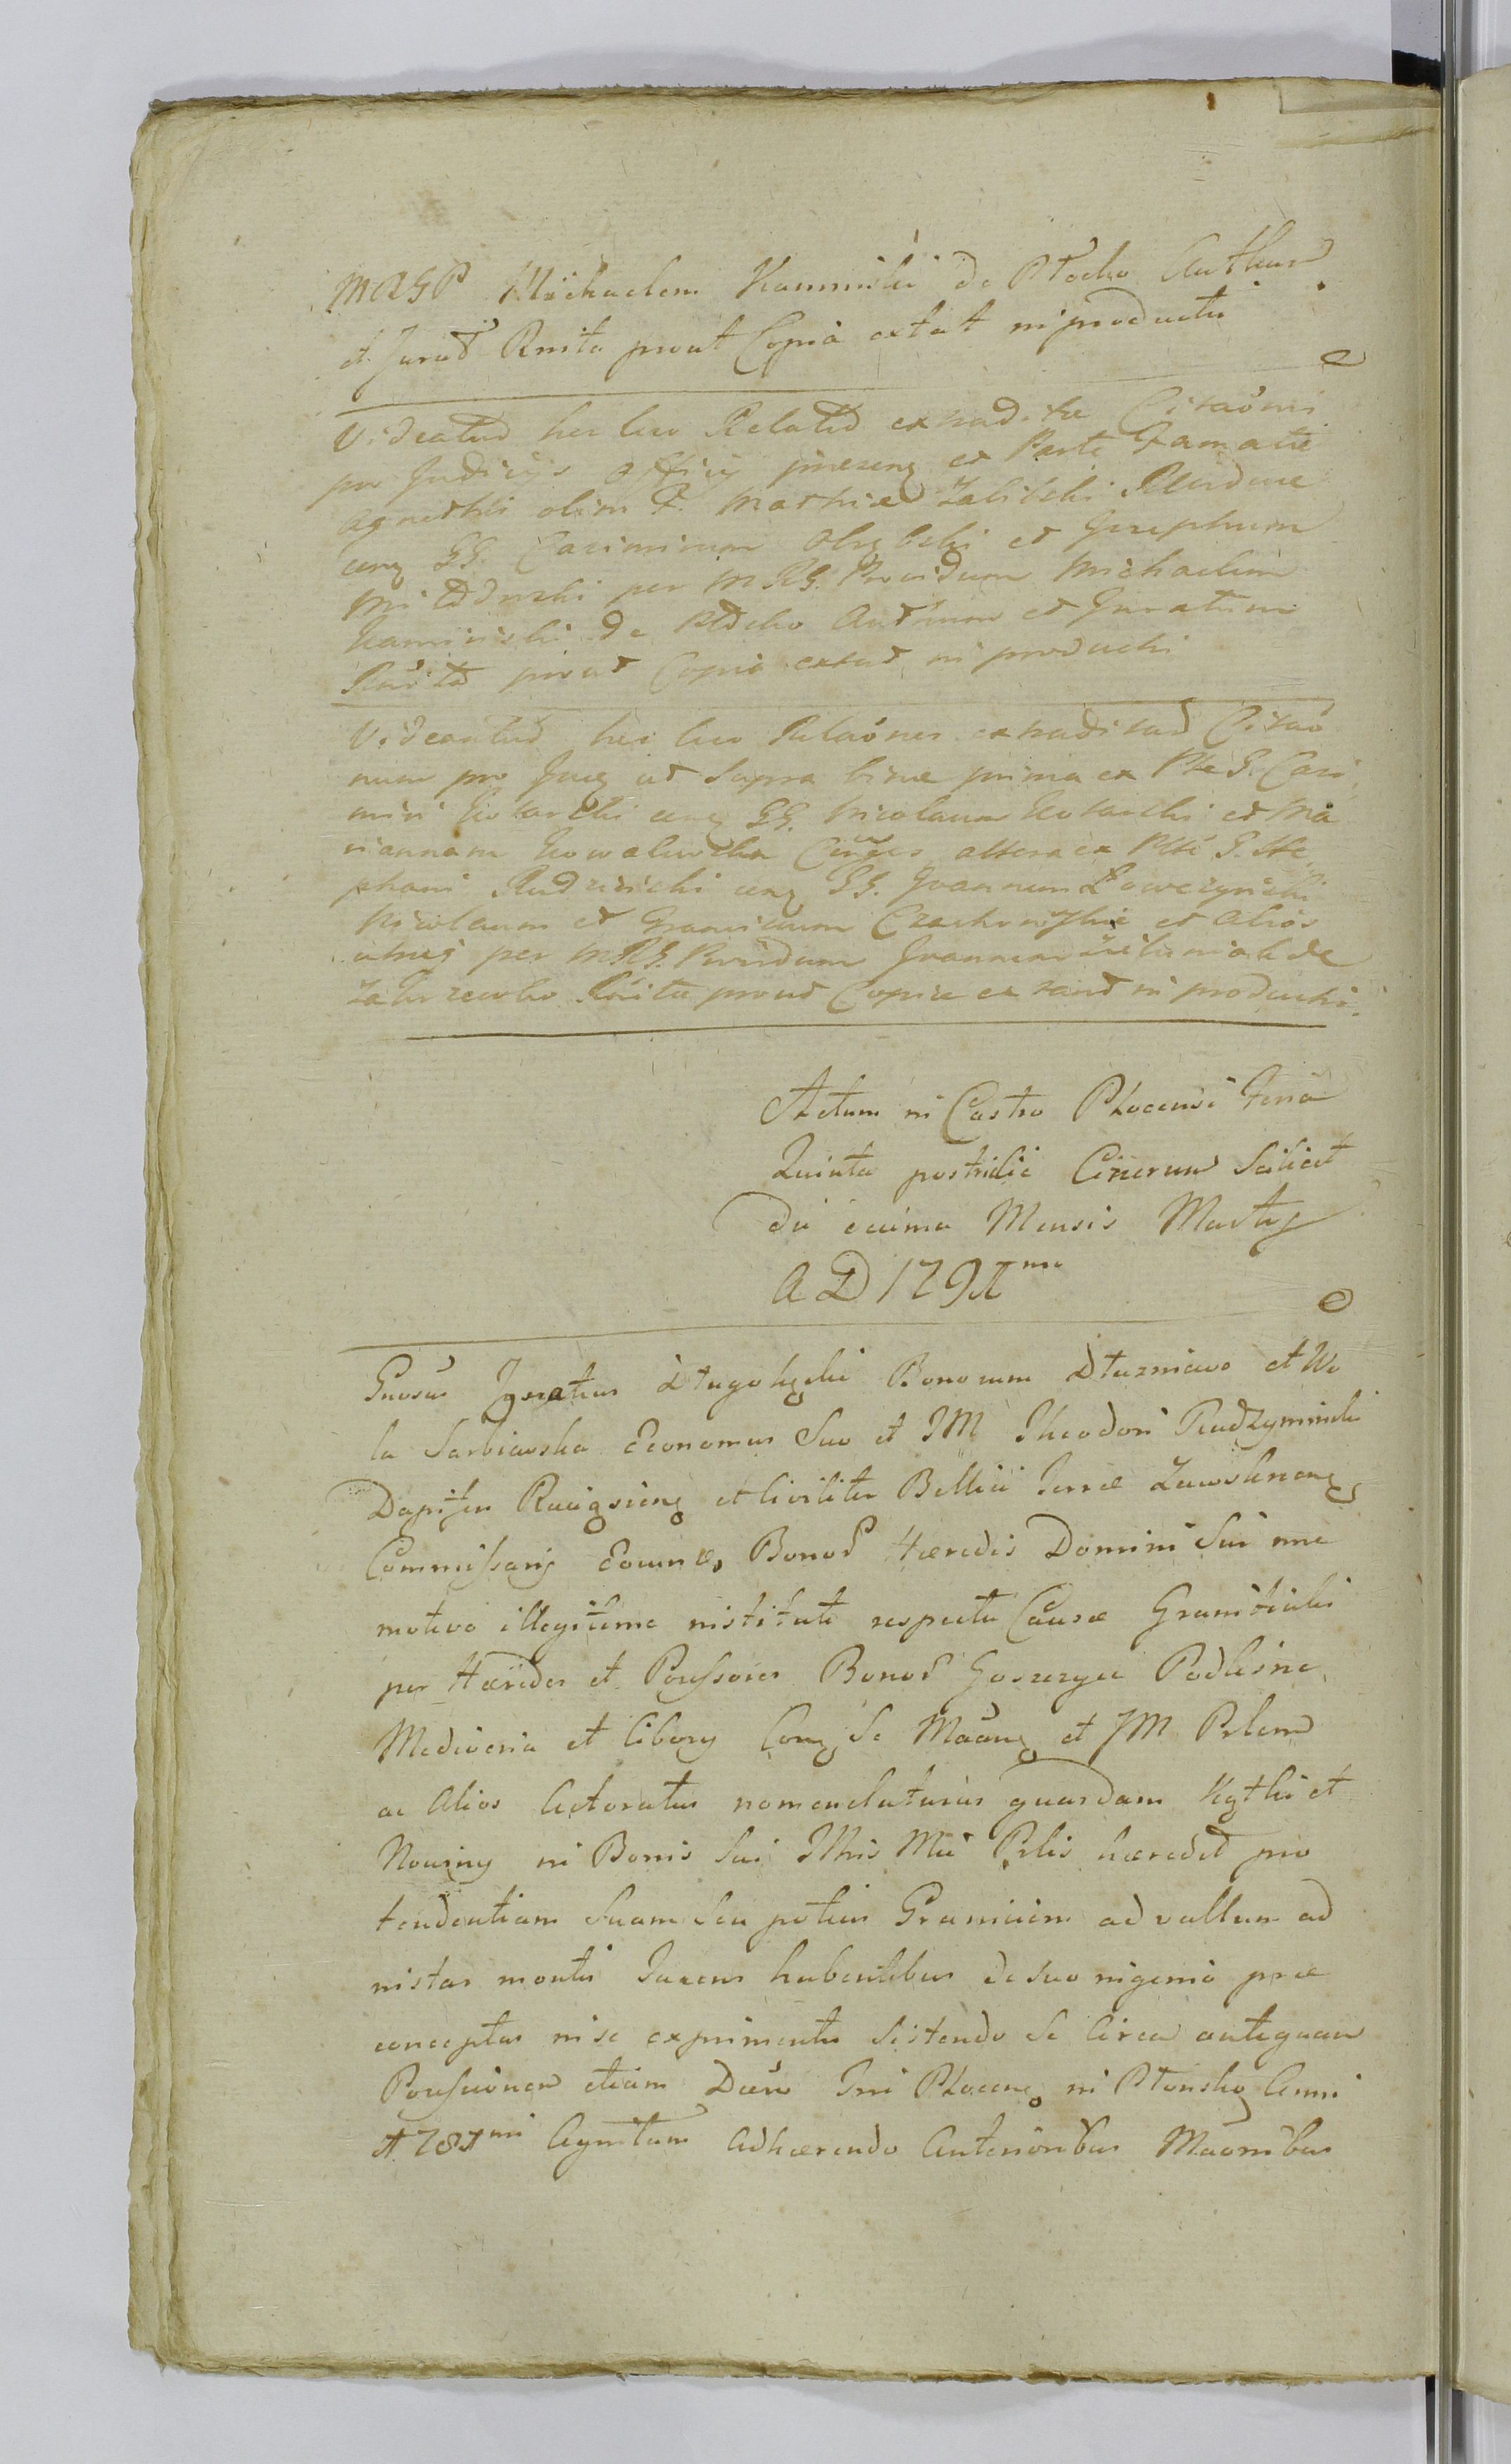 MRGP Michaelem Kaminski de Płocko Authen
et Jurat Rnita prout Copia extat in productu
Videatur hic loco Relatio extraditae Citaõnis
pro Judicijs Officij praesenq ex Parte Famatae
Agnethis olim F. Mathiae Zalibski Viduae
cenq GG. Casimirum Olrębski et Josephum
per MRG. Providum Michaelem
Kaminski de Płocko Autenum et Juratum
prout Copia extat in producti
Videantur hic loco Relaónes extraditar Citaó
num pro Juq ut Supra binae prima ex Pte G. Casi
miri Kosarski cenq GG. Nicolaum Kosarski et Ma
riannam Kowalewska Conges altera ex Pte G. Ste
phani Rudzinski cenq GG. Joannem Łowczynski
Nicolaum et Franciscum et alios
per MRG. Providum Joannem de
prout Copiae extant in producti
Actum in Castro Plocensi Feria
Quinta postridie Cinerum Scilicet
die decima Mensis Martij
A D 1791mo
Gnosus Ignatius Długołęcki Bonorum Dłuzniewo et Wo
la Sarbiewska Economus Suo et IM Theodori Rudzyminski
Dapifer Raciąsienq et Civiliter Bellici Terrae Zawskrenq
Commissarij Eorunde Bonor Haeredis Domini Sui nne
motivo illegitime instituti respectu Causae Granicialis
per Haeredes et Possores Bonor Goszczyce Podlesne
Mediocria et Cibory Conq Se Maanq et IM Prlem
ac Alios Actoratus nomenclaturus quasdam Kątki et
Nowiny in Bonis Sui Mei Prlis haeredit pro
tendentiam Suam Seu potius Graniciem ad vallum ad
instar montis Jacens habentibus de suo ingenio prae
conceptas nise expriments Sistendo Se Circa antiquam
Possessionem etiam Decre Jni Plocenq in Płonsko Anni
1781mi Agnitam Adhaerendo Anterioribus Maonibus